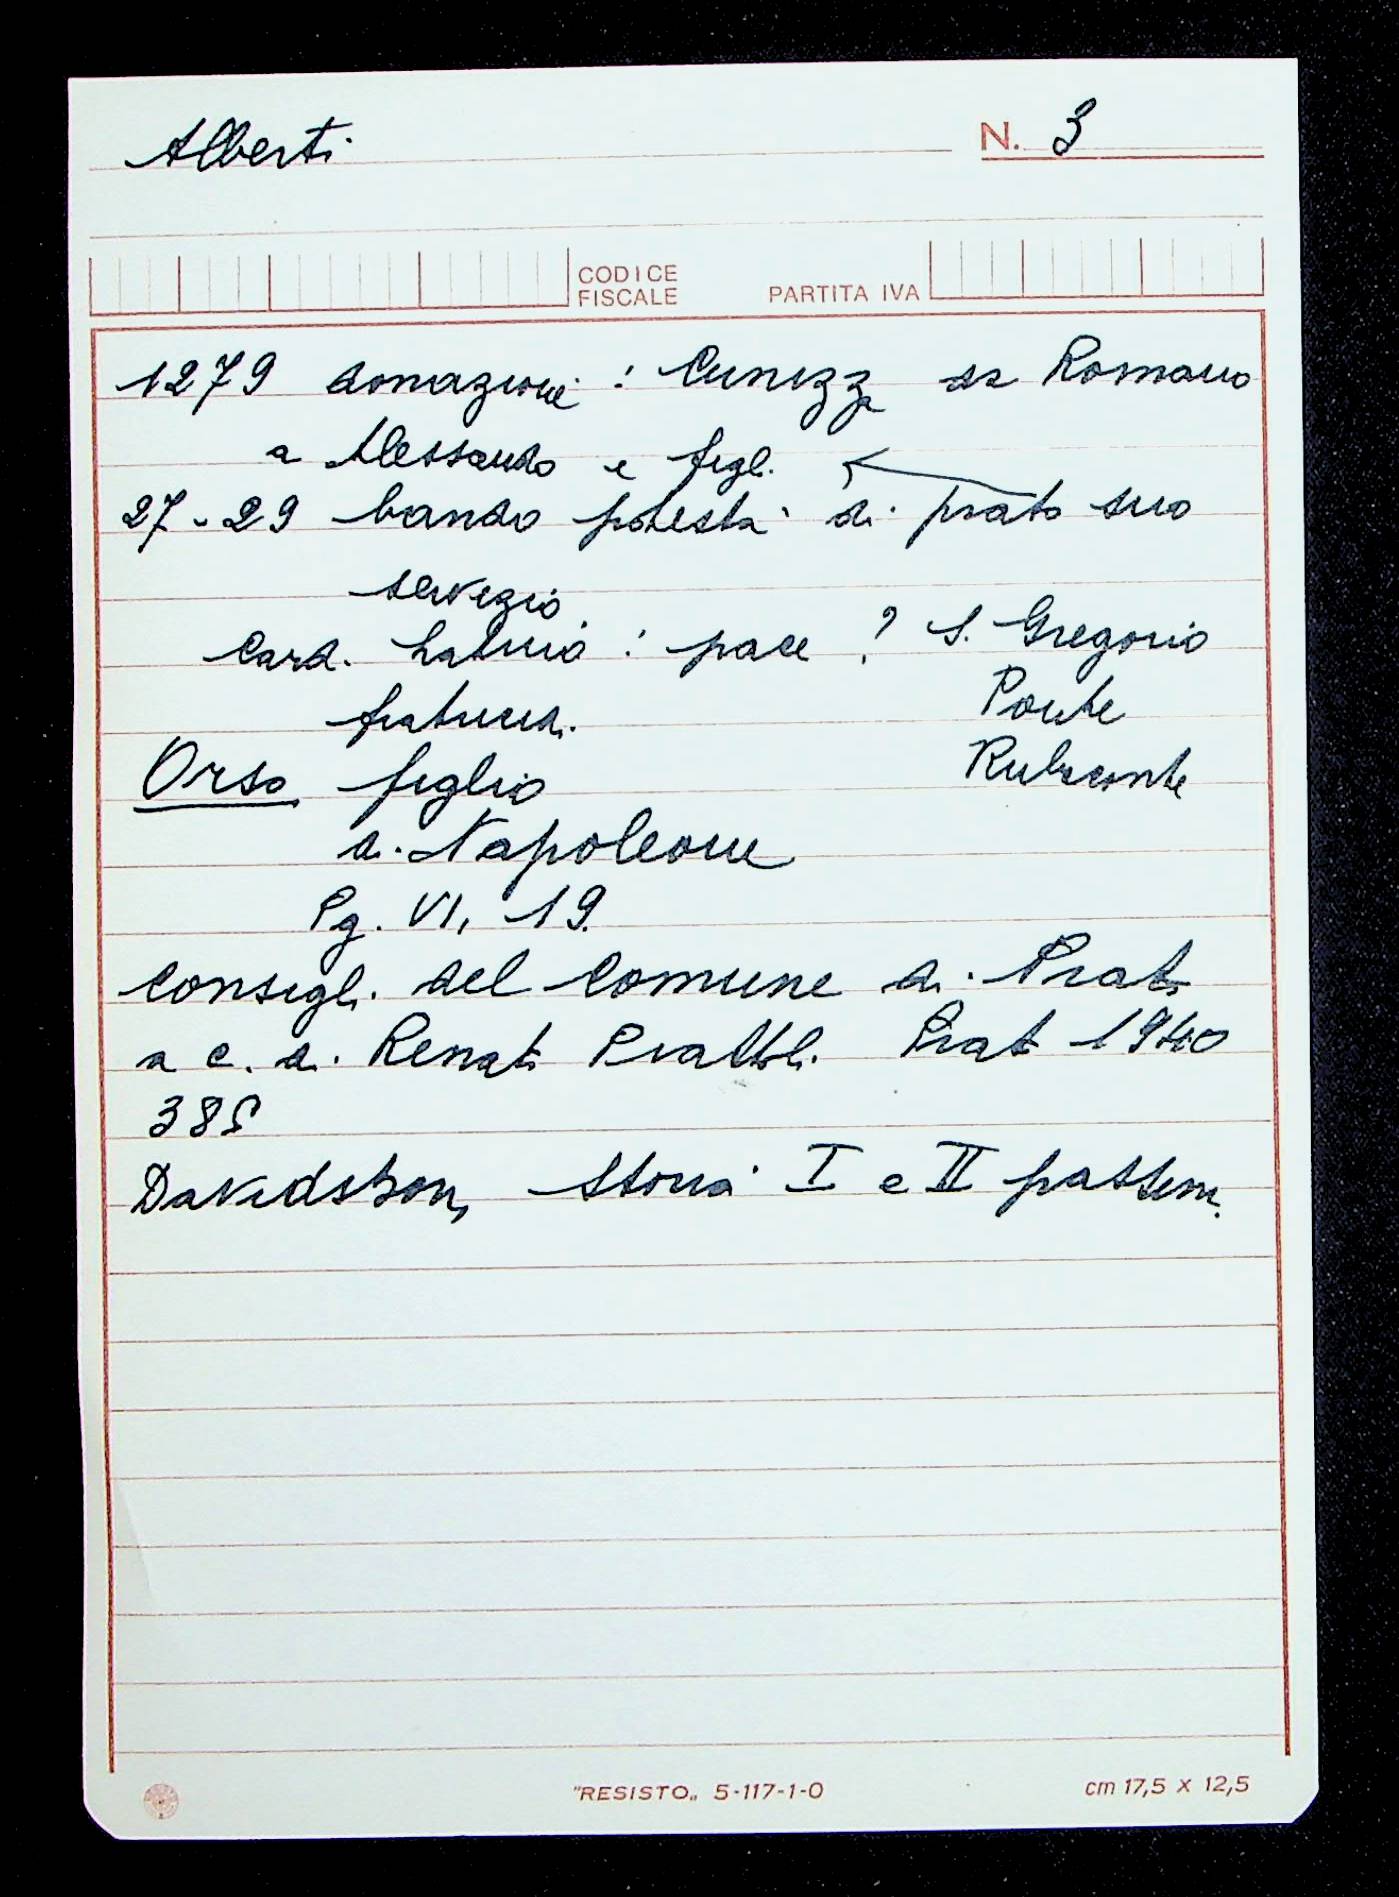 Alberti
N. 3
CODICE
FISCALE
PARTITA IVA
1279 donazione : Cunizza da Romano
a Alessandro e figli
27-29 bando potestà di prato suo
servizio
Card. Latino : pace ? S. Gregorio
Ponte
Orso figlio
Rubaconte
di Napoleone
Pg. VI, 19.
Consigli del Comune di Prato
a c. di Renato Piattoli Prato 1940
385
Davidsson, Storia I e II passim.
"RESISTO„ 5-117-1-0
cm 17,5 x 12,5